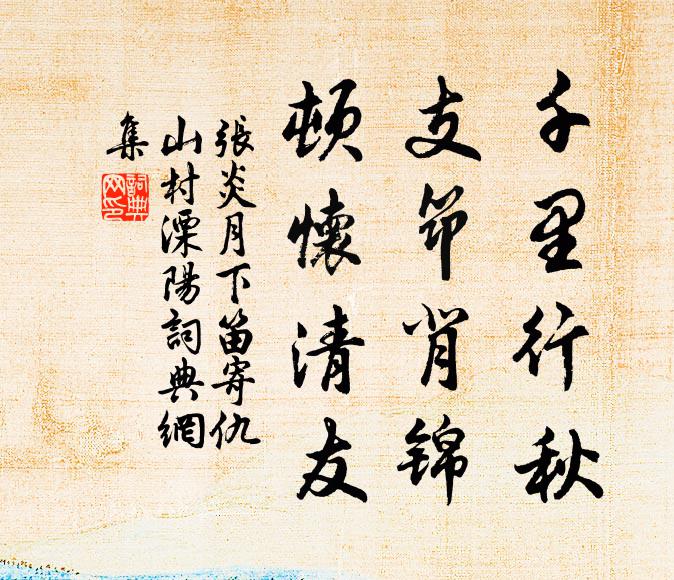 千里行秋
支筇背锦
頓懷清友
張炎月下笛寄仇
山村溧陽詞典網
集
詞典
网印